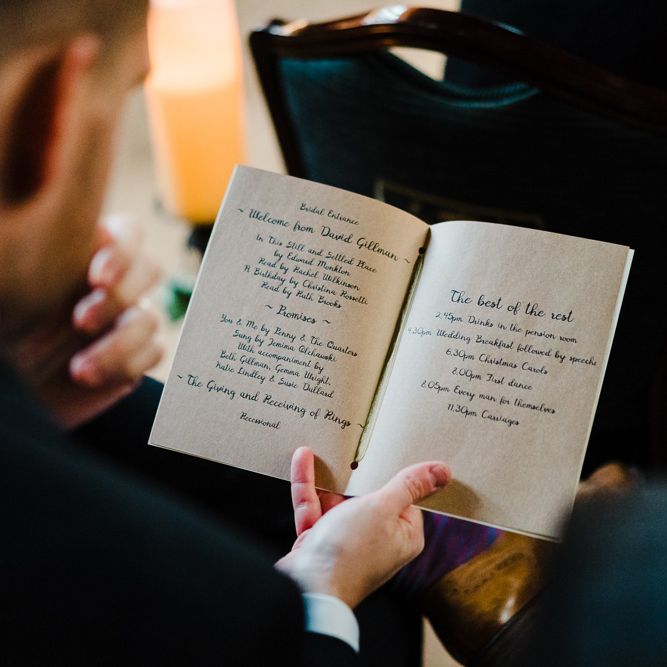 Bridal Entrance
~ Welcome from David Gillman ~
In this Still and Settled Place
by Edward Monkton
Read by Rachel Wilkinson
A Birthday by Christina Rossetti
Read by Ruth Brooks
~ Promises ~
You & Me by Penny & The Quarters
Sung by Jemima Olchawski
With accompaniment by
Beth Gillman, Gemma Wright,
Katie Lindley & Susie Dullard
~ The Giving and Receiving of Rings ~
Recessional
The best of the rest
2.45pm Drinks in the pension room
4.30pm Wedding Breakfast followed by speeche
6.30pm Christmas Carols
8.00pm First dance
8.05pm Every man for themselves
11.30pm Carriages